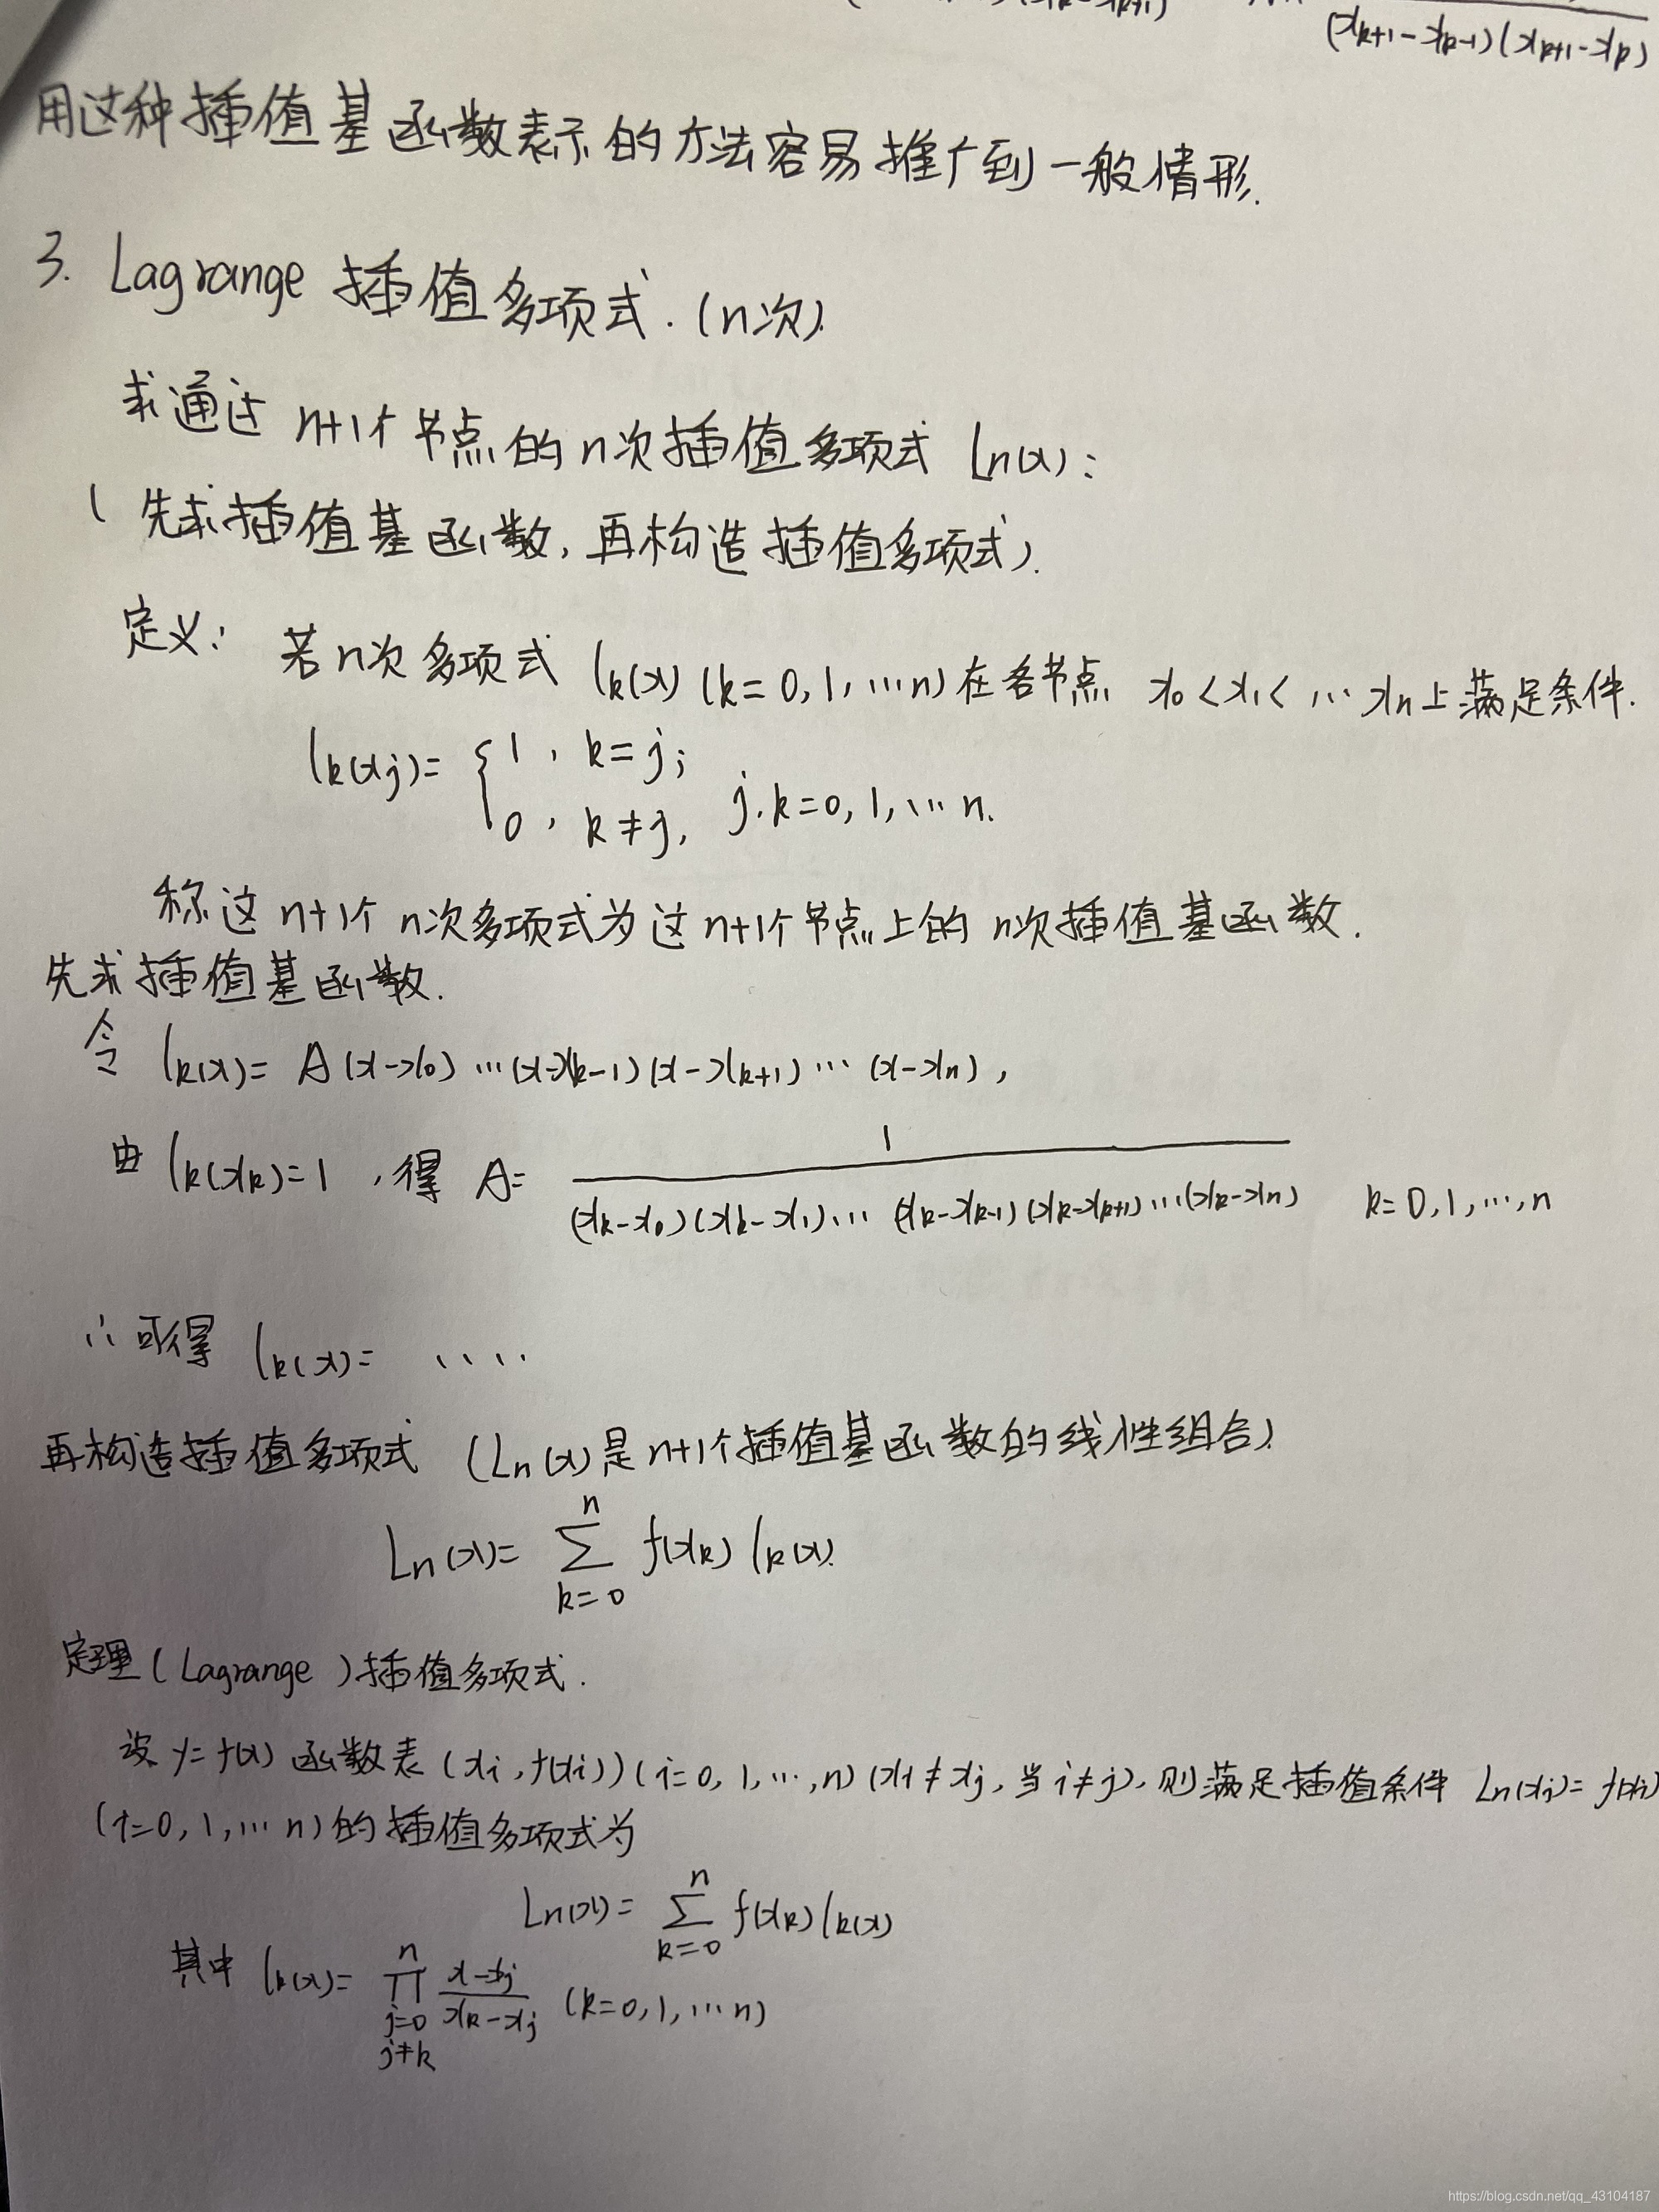 (x_{k+1}-x_{k-1})(x_{k+1}-x_k)
用这种插值基函数表示的方法容易推广到一般情形.
3. Lagrange 插值多项式.(n次).
求通过 n+1个节点的n次插值多项式 Ln(x):
( 先求插值基函数,再构造插值多项式).
定义: 若n次多项式 l_k(x) (k=0,1,…n)在各节点 x_0<x_1<…x_n上满足条件.
l_k(x_j)= { 1, k=j;
0, k≠j, j.k=0,1,…n.
称这n+1个n次多项式为这n+1个节点上的n次插值基函数.
先求插值基函数.
令 l_k(x)= A(x-x_0)…(x-x_{k-1})(x-x_{k+1})…(x-x_n),
由 l_k(x_k)=1,得 A= 1/((x_k-x_0)(x_k-x_1)…(x_k-x_{k-1})(x_k-x_{k+1})…(x_k-x_n)) k=0,1,…,n
∴可得 l_k(x)= ....
再构造插值多项式 (Ln(x)是n+1个插值基函数的线性组合)
Ln(x)= ∑_{k=0}^{n} f(x_k) l_k(x).
定理(Lagrange)插值多项式.
设 y=f(x)函数表(x_i,f(x_i))(i=0,1,…,n)(x_i≠x_j,当i≠j),则满足插值条件 Ln(x_i)=f(x_i)
(i=0,1,…n)的插值多项式为
Ln(x)= ∑_{k=0}^{n} f(x_k) l_k(x)
其中 l_k(x)= ∏_{j=0, j≠k}^{n} (x-x_j)/(x_k-x_j) (k=0,1,…n)
https://blog.csdn.net/qq_43104187